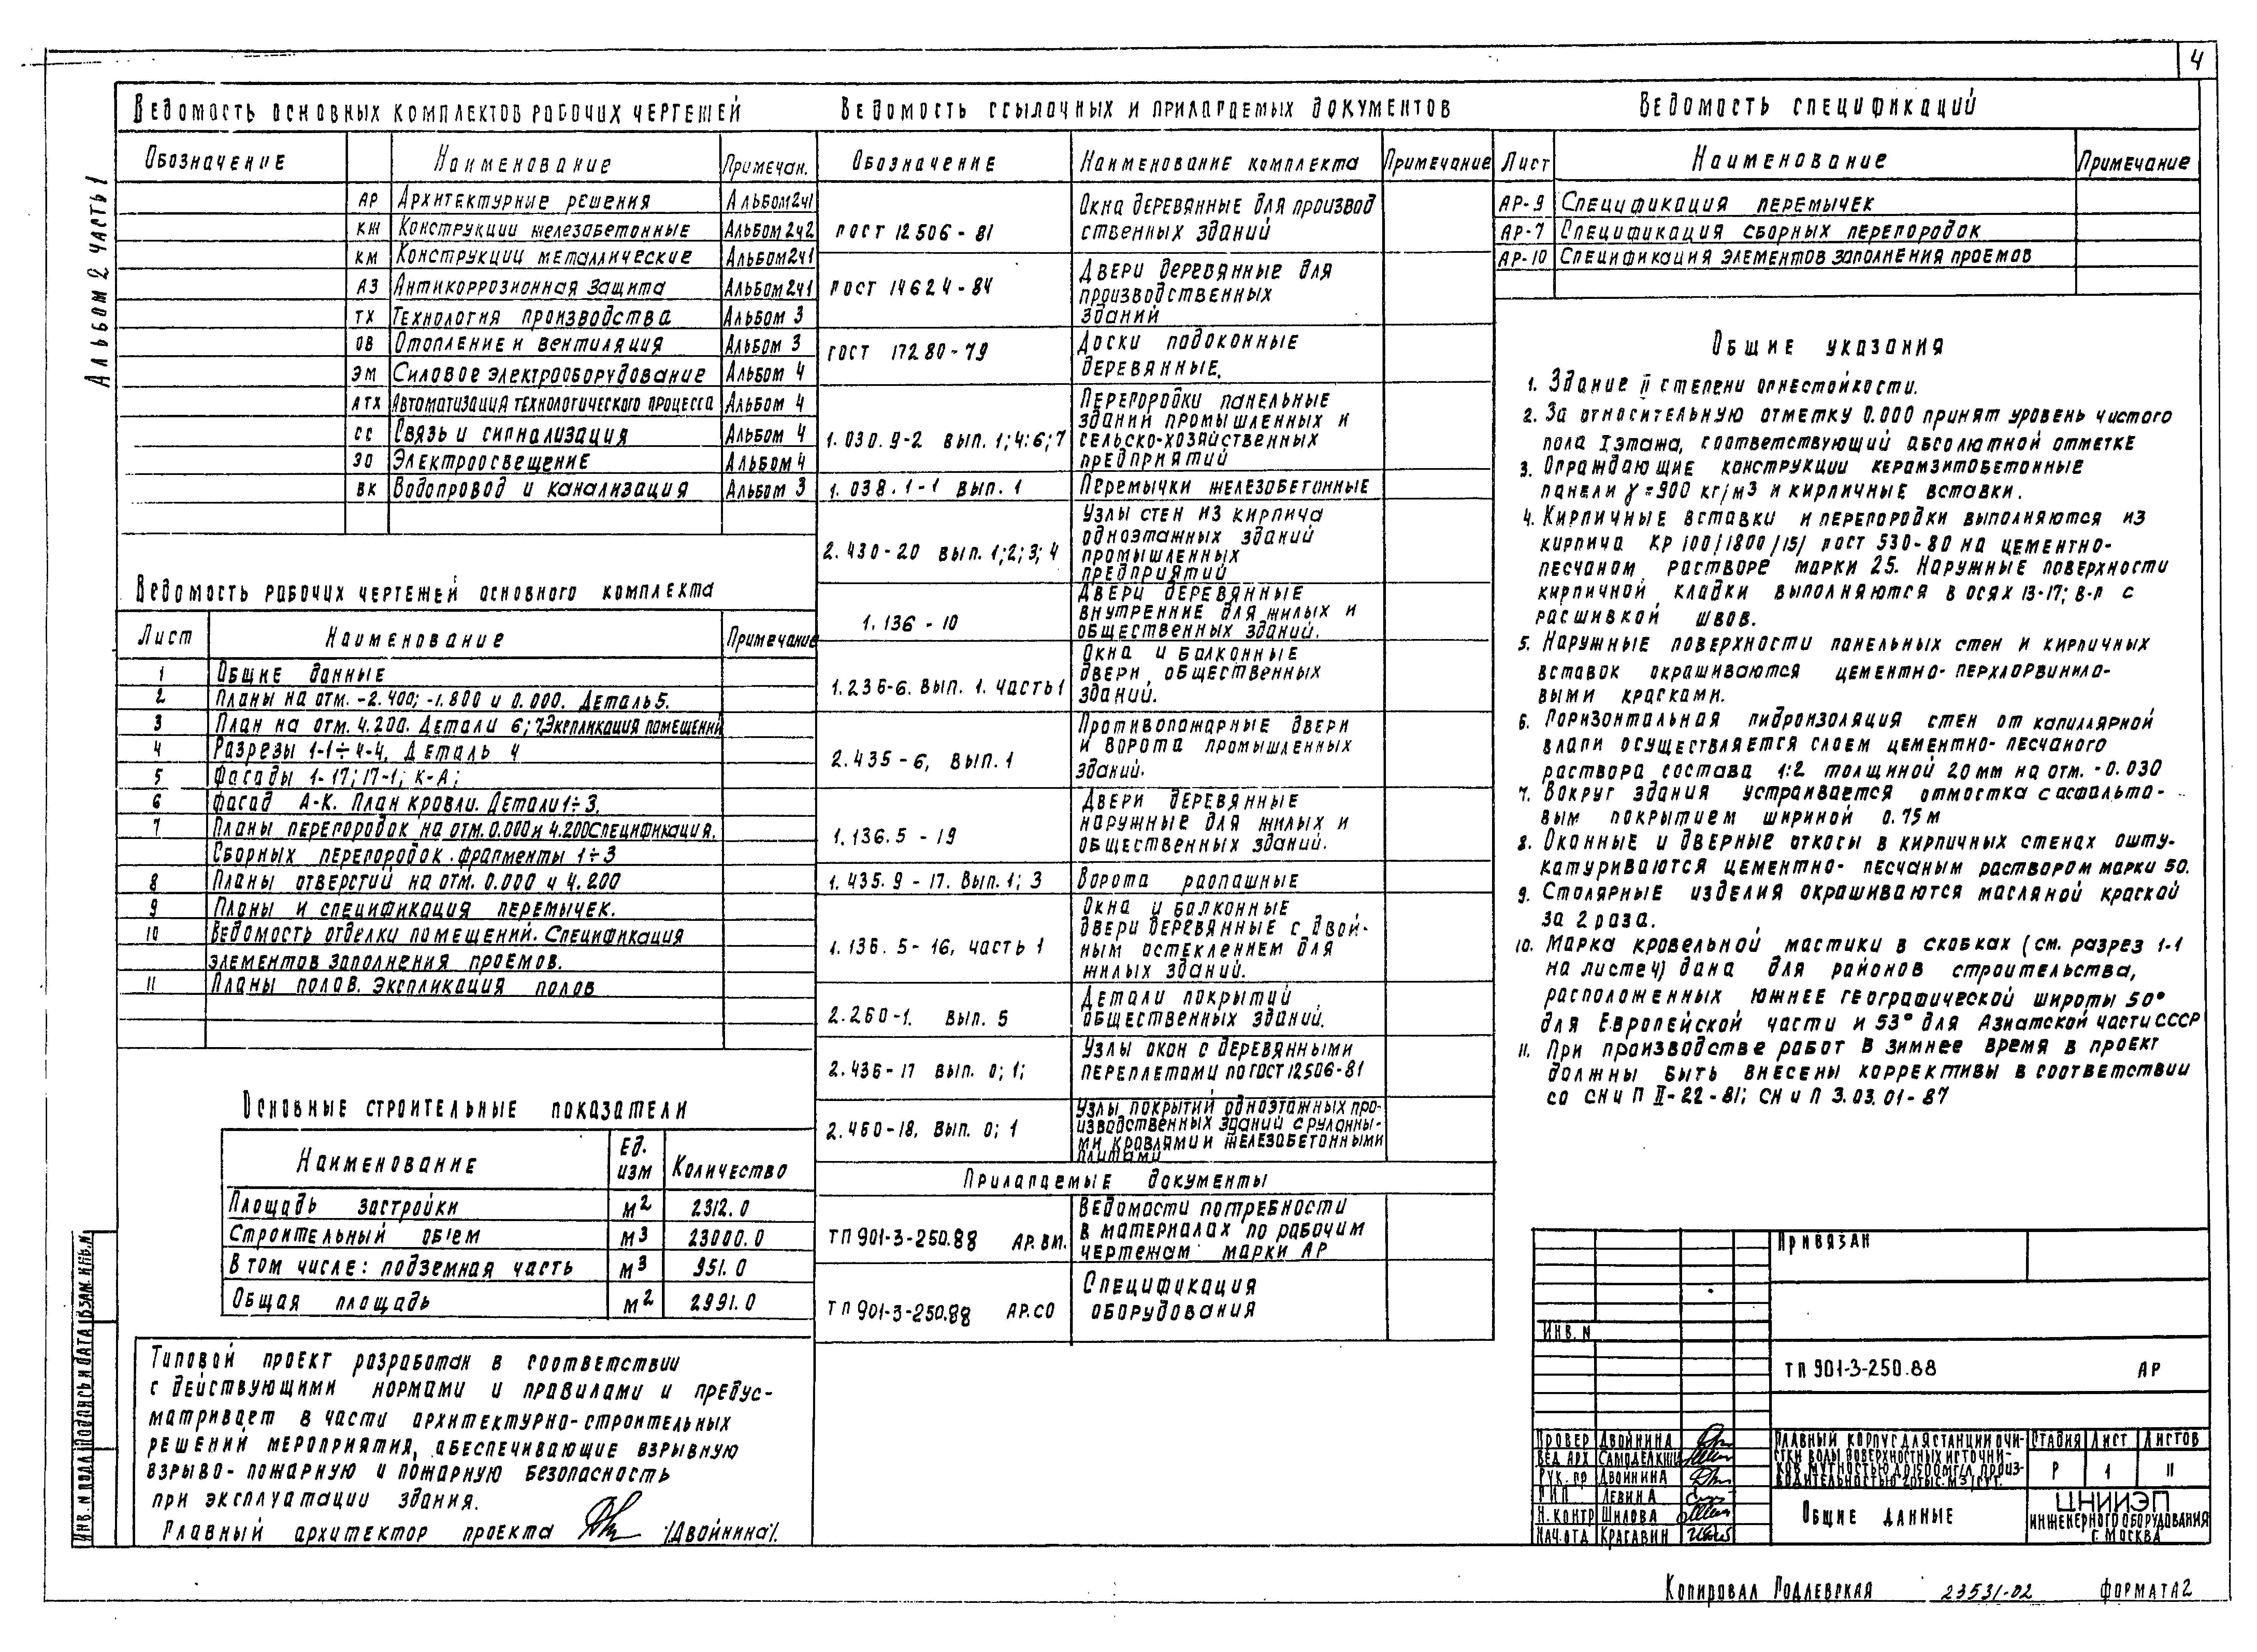 4
Альбом 2 часть 1
Ведомость основных комплектов рабочих чертежей
Обозначение Наименование Примечан.
АР Архитектурные решения Альбом 2ч1
КЖ Конструкции железобетонные Альбом 2ч2
КМ Конструкции металлические Альбом 2ч1
АЗ Антикоррозионная защита Альбом 2ч1
ТХ Технология производства Альбом 3
ОВ Отопление и вентиляция Альбом 3
ЭМ Силовое электрооборудование Альбом 4
АТХ Автоматизация технологического процесса Альбом 4
СС Связь и сигнализация Альбом 4
ЭО Электроосвещение Альбом 4
ВК Водопровод и канализация Альбом 3
Ведомость рабочих чертежей основного комплекта
Лист Наименование Примечание
1 Общие данные
2 Планы на отм. -2.400; -1.800 и 0.000. Деталь 5.
3 План на отм. 4.200. Детали 6;7. Экспликация помещений
4 Разрезы 1-1÷4-4. Деталь 4
5 Фасады 1-17; 17-1; К-А;
6 Фасад А-К. План кровли. Детали 1÷3.
7 Планы перегородок на отм. 0.000 и 4.200 Спецификация.
Сборных перегородок. Фрагменты 1÷3
8 Планы отверстий на отм. 0.000 и 4.200
9 Планы и спецификация перемычек.
10 Ведомость отделки помещений. Спецификация
элементов заполнения проемов.
11 Планы полов. Экспликация полов
Основные строительные показатели
Наименование Ед. изм Количество
Площадь застройки м2 2312.0
Строительный объем м3 23000.0
В том числе: подземная часть м3 951.0
Общая площадь м2 2991.0
Типовой проект разработан в соответствии
с действующими нормами и правилами и предус-
матривает в части архитектурно-строительных
решений мероприятия, обеспечивающие взрывную
взрыво-пожарную и пожарную безопасность
при эксплуатации здания.
Главный архитектор проекта /Двойнина/.
Ведомость ссылочных и прилагаемых документов
Обозначение Наименование комплекта Примечание
ГОСТ 12506-81 Окна деревянные для производ
ственных зданий
ГОСТ 14624-84 Двери деревянные для
производственных
зданий
ГОСТ 17280-79 Доски подоконные
деревянные.
1.030.9-2 вып. 1;4;6;7 Перегородки панельные
зданий промышленных и
сельско-хозяйственных
предприятий
1.038.1-1 вып. 1 Перемычки железобетонные
2.430-20 вып. 1;2;3;4 Узлы стен из кирпича
одноэтажных зданий
промышленных
предприятий
1.136-10 Двери деревянные
внутренние для жилых и
общественных зданий.
1.236-6. вып. 1. часть 1 Окна и балконные
двери общественных
зданий.
2.435-6, вып. 1 Противопожарные двери
и ворота промышленных
зданий.
1.136.5-19 Двери деревянные
наружные для жилых и
общественных зданий.
1.435.9-17. Вып. 1; 3 Ворота распашные
1.136.5-16, часть 1 Окна и балконные
двери деревянные с двой-
ным остеклением для
жилых зданий.
2.260-1. Вып. 5 Детали покрытий
общественных зданий.
2.436-17 вып. 0; 1; Узлы окон с деревянными
переплетами по ГОСТ 12506-81
2.460-18, вып. 0; 1 Узлы покрытий одноэтажных про-
изводственных зданий с рулонны-
ми кровлями и железобетонными
плитами
Прилагаемые документы
ТП 901-3-250.88 АР.ВМ. Ведомости потребности
в материалах по рабочим
чертежам марки АР
ТП 901-3-250.88 АР.СО Спецификация
оборудования
Ведомость спецификаций
Лист Наименование Примечание
АР-9 Спецификация перемычек
АР-7 Спецификация сборных перегородок
АР-10 Спецификация элементов заполнения проемов
Общие указания
1. Здание II степени огнестойкости.
2. За относительную отметку 0.000 принят уровень чистого
пола I этажа, соответствующий абсолютной отметке
3. Ограждающие конструкции керамзитобетонные
панели γ=900 кг/м3 и кирпичные вставки.
4. Кирпичные вставки и перегородки выполняются из
кирпича КР 100/1800/15/ ГОСТ 530-80 на цементно-
песчаном растворе марки 25. Наружные поверхности
кирпичной кладки выполняются в осях 13-17; В-Г с
расшивкой швов.
5. Наружные поверхности панельных стен и кирпичных
вставок окрашиваются цементно-перхлорвинило-
выми красками.
6. Горизонтальная гидроизоляция стен от капиллярной
влаги осуществляется слоем цементно-песчаного
раствора состава 1:2 толщиной 20 мм на отм. -0.030
7. Вокруг здания устраивается отмостка с асфальто-
вым покрытием шириной 0.75 м
8. Оконные и дверные откосы в кирпичных стенах ошту-
катуриваются цементно-песчаным раствором марки 50.
9. Столярные изделия окрашиваются масляной краской
за 2 раза.
10. Марка кровельной мастики в скобках (см. разрез 1-1
на листе 4) дана для районов строительства,
расположенных южнее географической широты 50°
для Европейской части и 53° для Азиатской части СССР
11. При производстве работ в зимнее время в проект
должны быть внесены коррективы в соответствии
со СНиП II-22-81; СНиП 3.03.01-87
Привязан
Инв. N
ТП 901-3-250.88 АР
Провер Двойнина
Вед. арх Самоделкина
Рук. гр Двойнина
ГИП Левина
Н.контр Шилова
Нач.отд Красавин
Главный корпус для станции очи-
стки воды поверхностных источни-
ков мутностью до 1500 мг/л произ-
водительностью 20 тыс. м3/сут.
Стадия Лист Листов
Р 1 11
Общие данные
ЦНИИЭП
инженерного оборудования
г. Москва
Инв. N подл Подпись и дата Взам. инв. N
Копировал Подлевская 23531-02 Формат А2